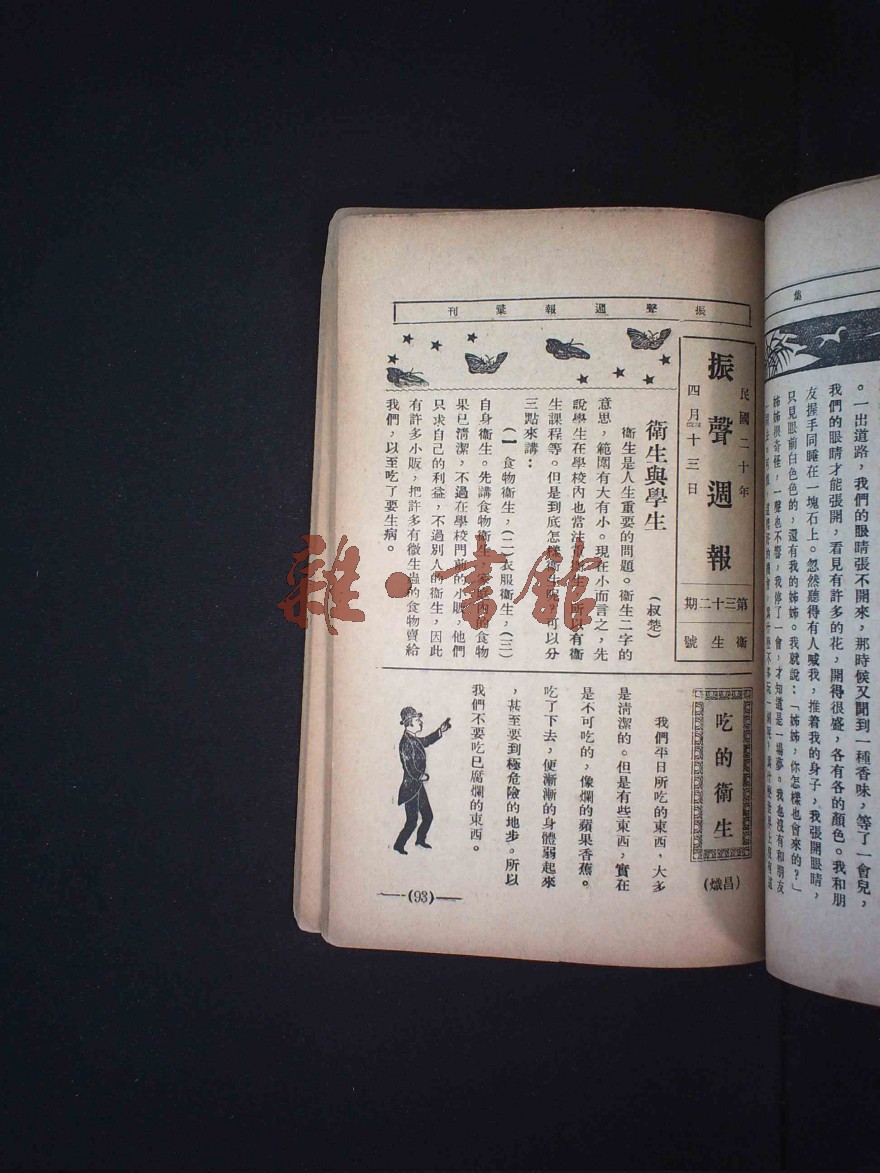 振聲週報彙刊
民國二十年
四月十三日
振聲週報
第三十二期
衛生號
衛生與學生
(叔楚)
衛生是人生重要的問題。衛生二字的
意思，範圍有大有小。現在小而言之，先
說學生在學校內也當注重衛生，所以有衛
生課程等。但是到底怎樣衛生呢？可以分
三點來講：
(一)食物衛生，(二)衣服衛生，(三)
自身衛生。先講食物衛生，家庭內的食物
果已清潔，不過在學校門前的小販，他們
只求自己的利益，不過別人的衛生，因此
有許多小販，把許多有微生蟲的食物賣給
我們，以至吃了要生病。
吃的衛生
(熾昌)
我們平日所吃的東西，大多
是清潔的。但是有些東西，實在
是不可吃的，像爛的蘋果香蕉。
吃了下去，便漸漸的身體弱起來
，甚至要到極危險的地步。所以
我們不要吃已腐爛的東西。
(93)
集
。一出道路，我們的眼睛張不開來，那時候又聞到一種香味，等了一會兒，
我們的眼睛才能張開，看見有許多的花，開得很盛，各有各的顏色。我和朋
友握手同睡在一塊石上。忽然聽得有人喊我，推着我的身子，我張開眼睛，
只見眼前白色色的，還有我的姊姊。我就說：「姊姊，你怎樣也會來的？」
姊姊很奇怪，一聲也不響，我停了一會，才知道是一場夢。我也沒有和朋友
雜·書館